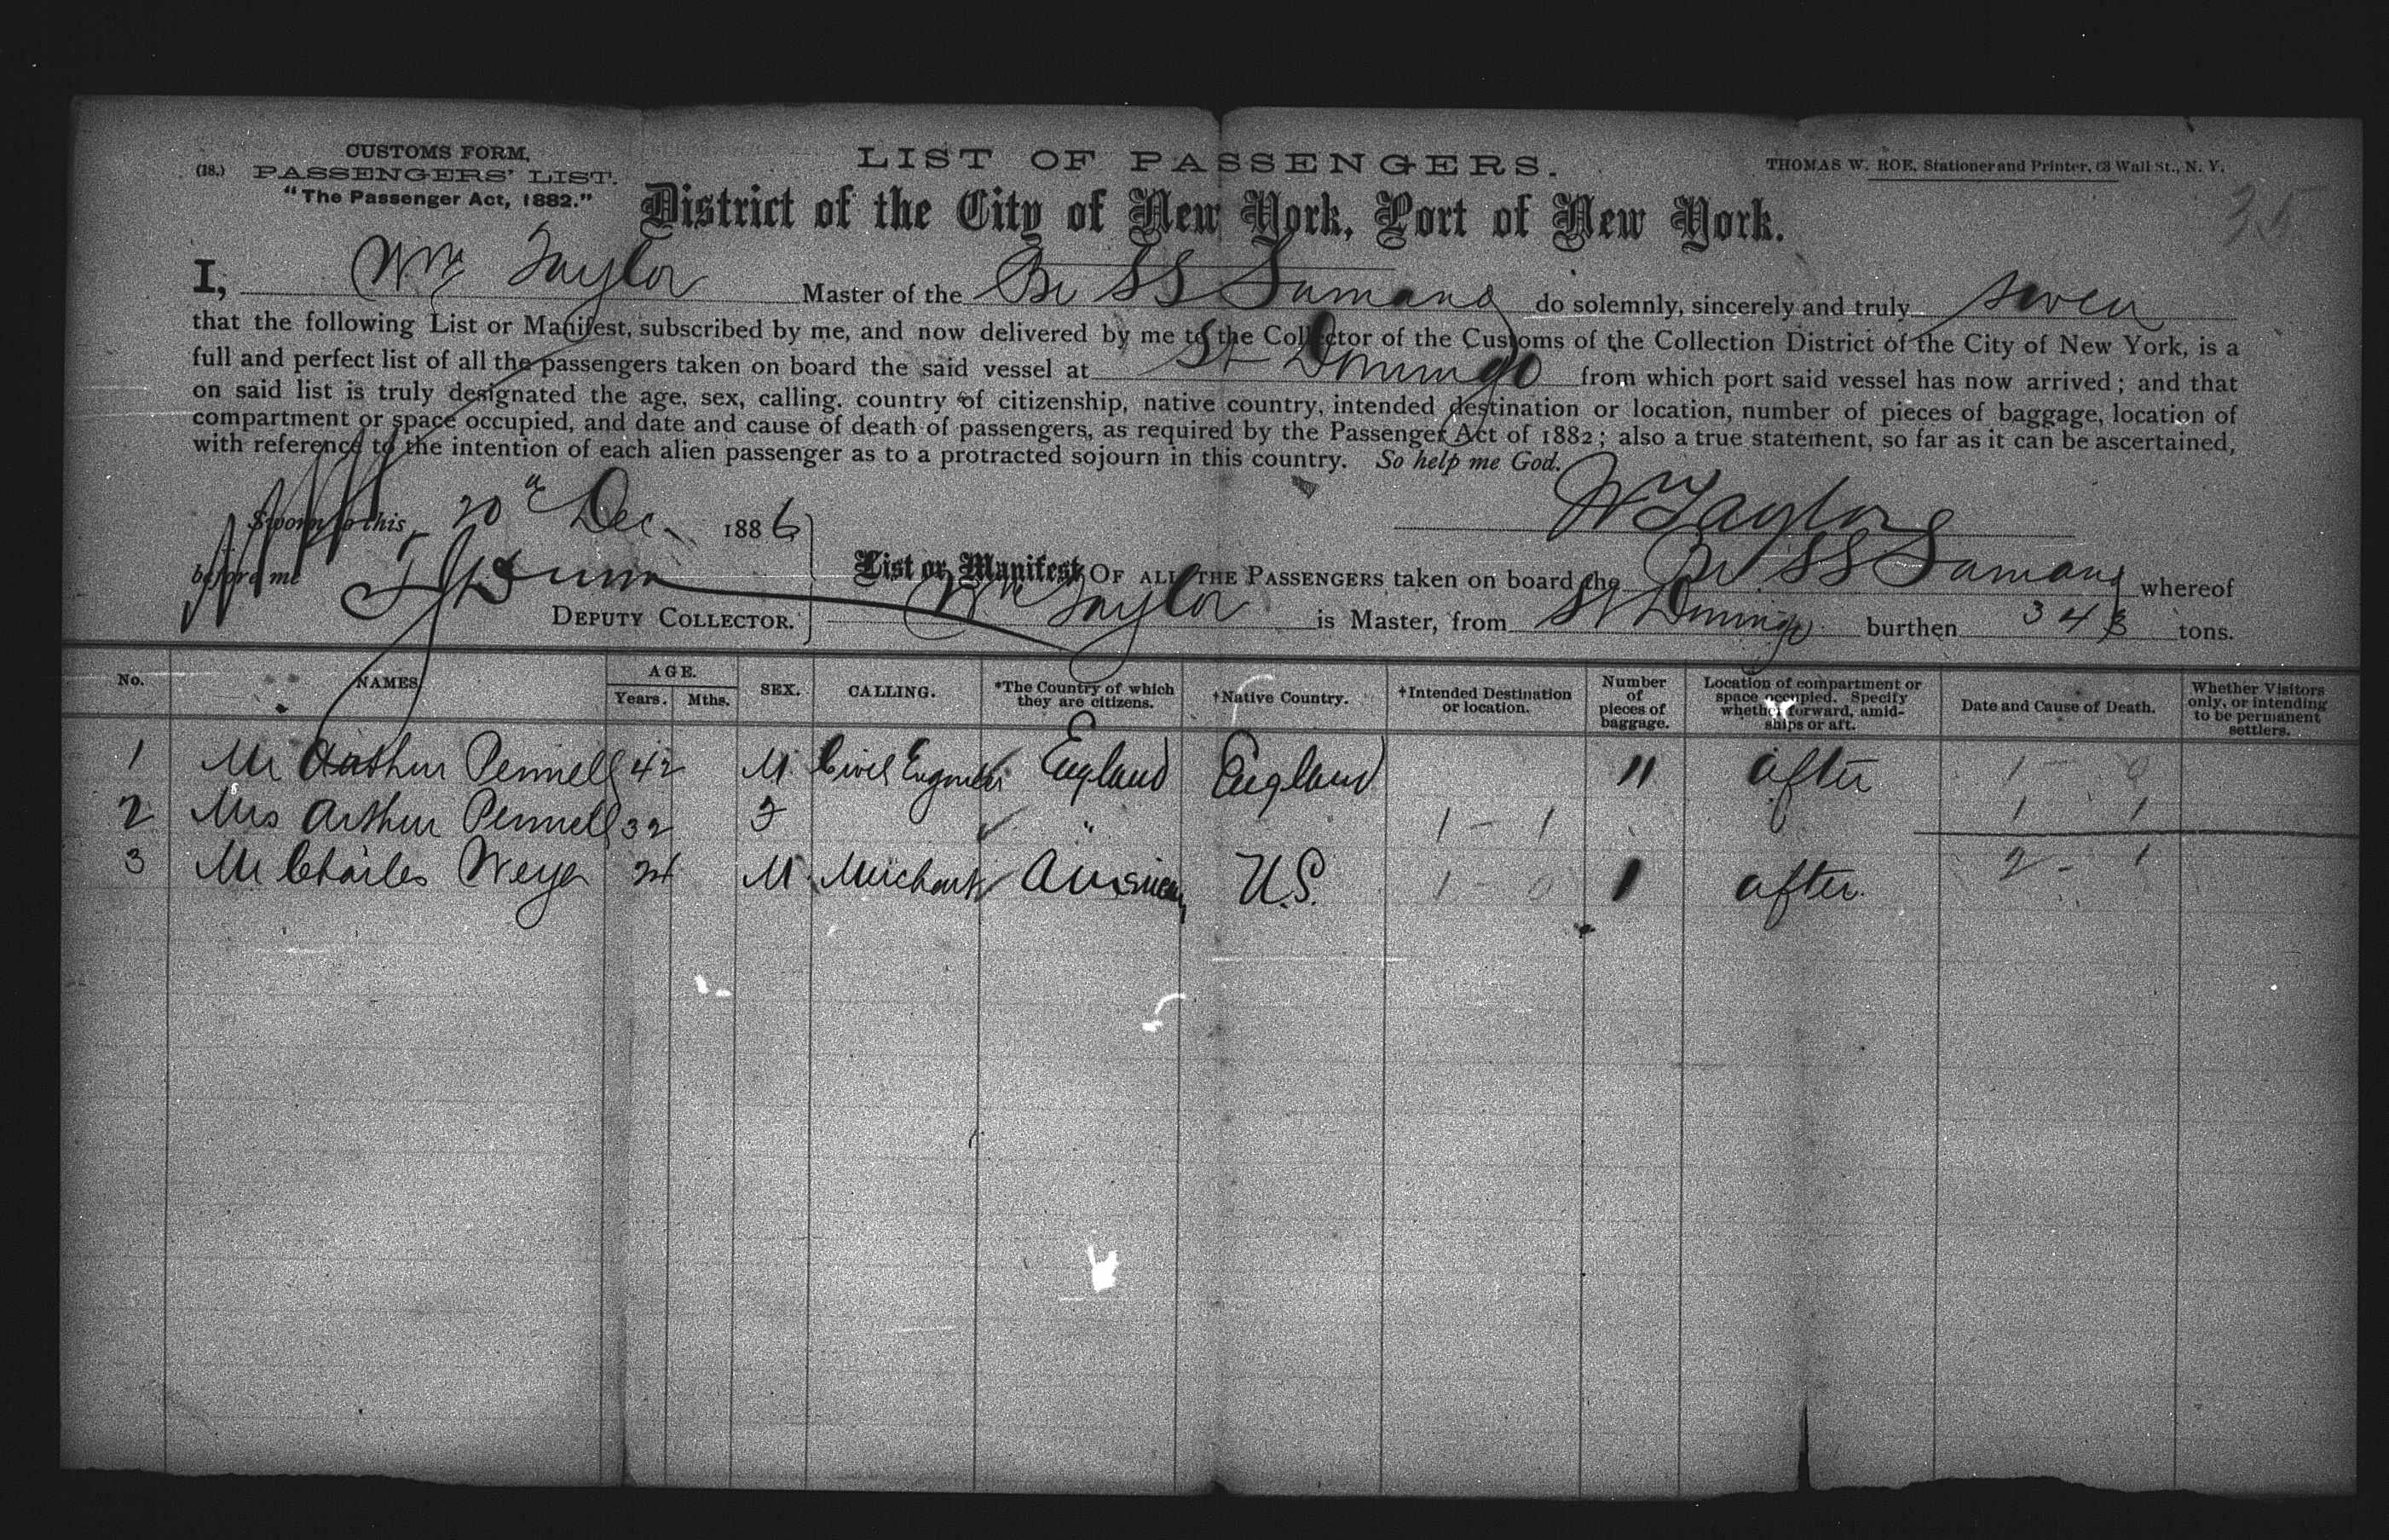 CUSTOMS FORM,
(18.) PASSENGERS' LIST.
"The Passenger Act, 1882."
LIST OF PASSENGERS.
THOMAS W. ROE, Stationer and Printer, 63 Wall St., N. Y.
35
District of the City of New York, Port of New York.
I, Wm Taylor Master of the Br SS Samana do solemnly, sincerely and truly swear
that the following List or Manifest, subscribed by me, and now delivered by me to the Collector of the Customs of the Collection District of the City of New York, is a
full and perfect list of all the passengers taken on board the said vessel at St Domingo from which port said vessel has now arrived; and that
on said list is truly designated the age, sex, calling, country of citizenship, native country, intended destination or location, number of pieces of baggage, location of
compartment or space occupied, and date and cause of death of passengers, as required by the Passenger Act of 1882; also a true statement, so far as it can be ascertained,
with reference to the intention of each alien passenger as to a protracted sojourn in this country. So help me God.
Sworn to this 20th Dec. 1886
W Taylor
before me
DEPUTY COLLECTOR.
List or Manifest OF ALL THE PASSENGERS taken on board the Br SS Samana whereof
Wm Taylor is Master, from St Domingo burthen 348 tons.
No. NAMES AGE. Years. Mths. SEX. CALLING. *The Country of which they are citizens. †Native Country. †Intended Destination or location. Number of pieces of baggage. Location of compartment or space occupied. Specify whether forward, amidships or aft. Date and Cause of Death. Whether Visitors only, or intending to be permanent settlers.
1 Mr Arthur Pennell 42 M. Civil Engineer England England 11 after 1 - 0
2 Mrs Arthur Pennell 32 F " 1 - 1 1 1
3 Mr Charles Weyer 24 M. Merchant American U.S. 1 - 0 1 after 2 - 1